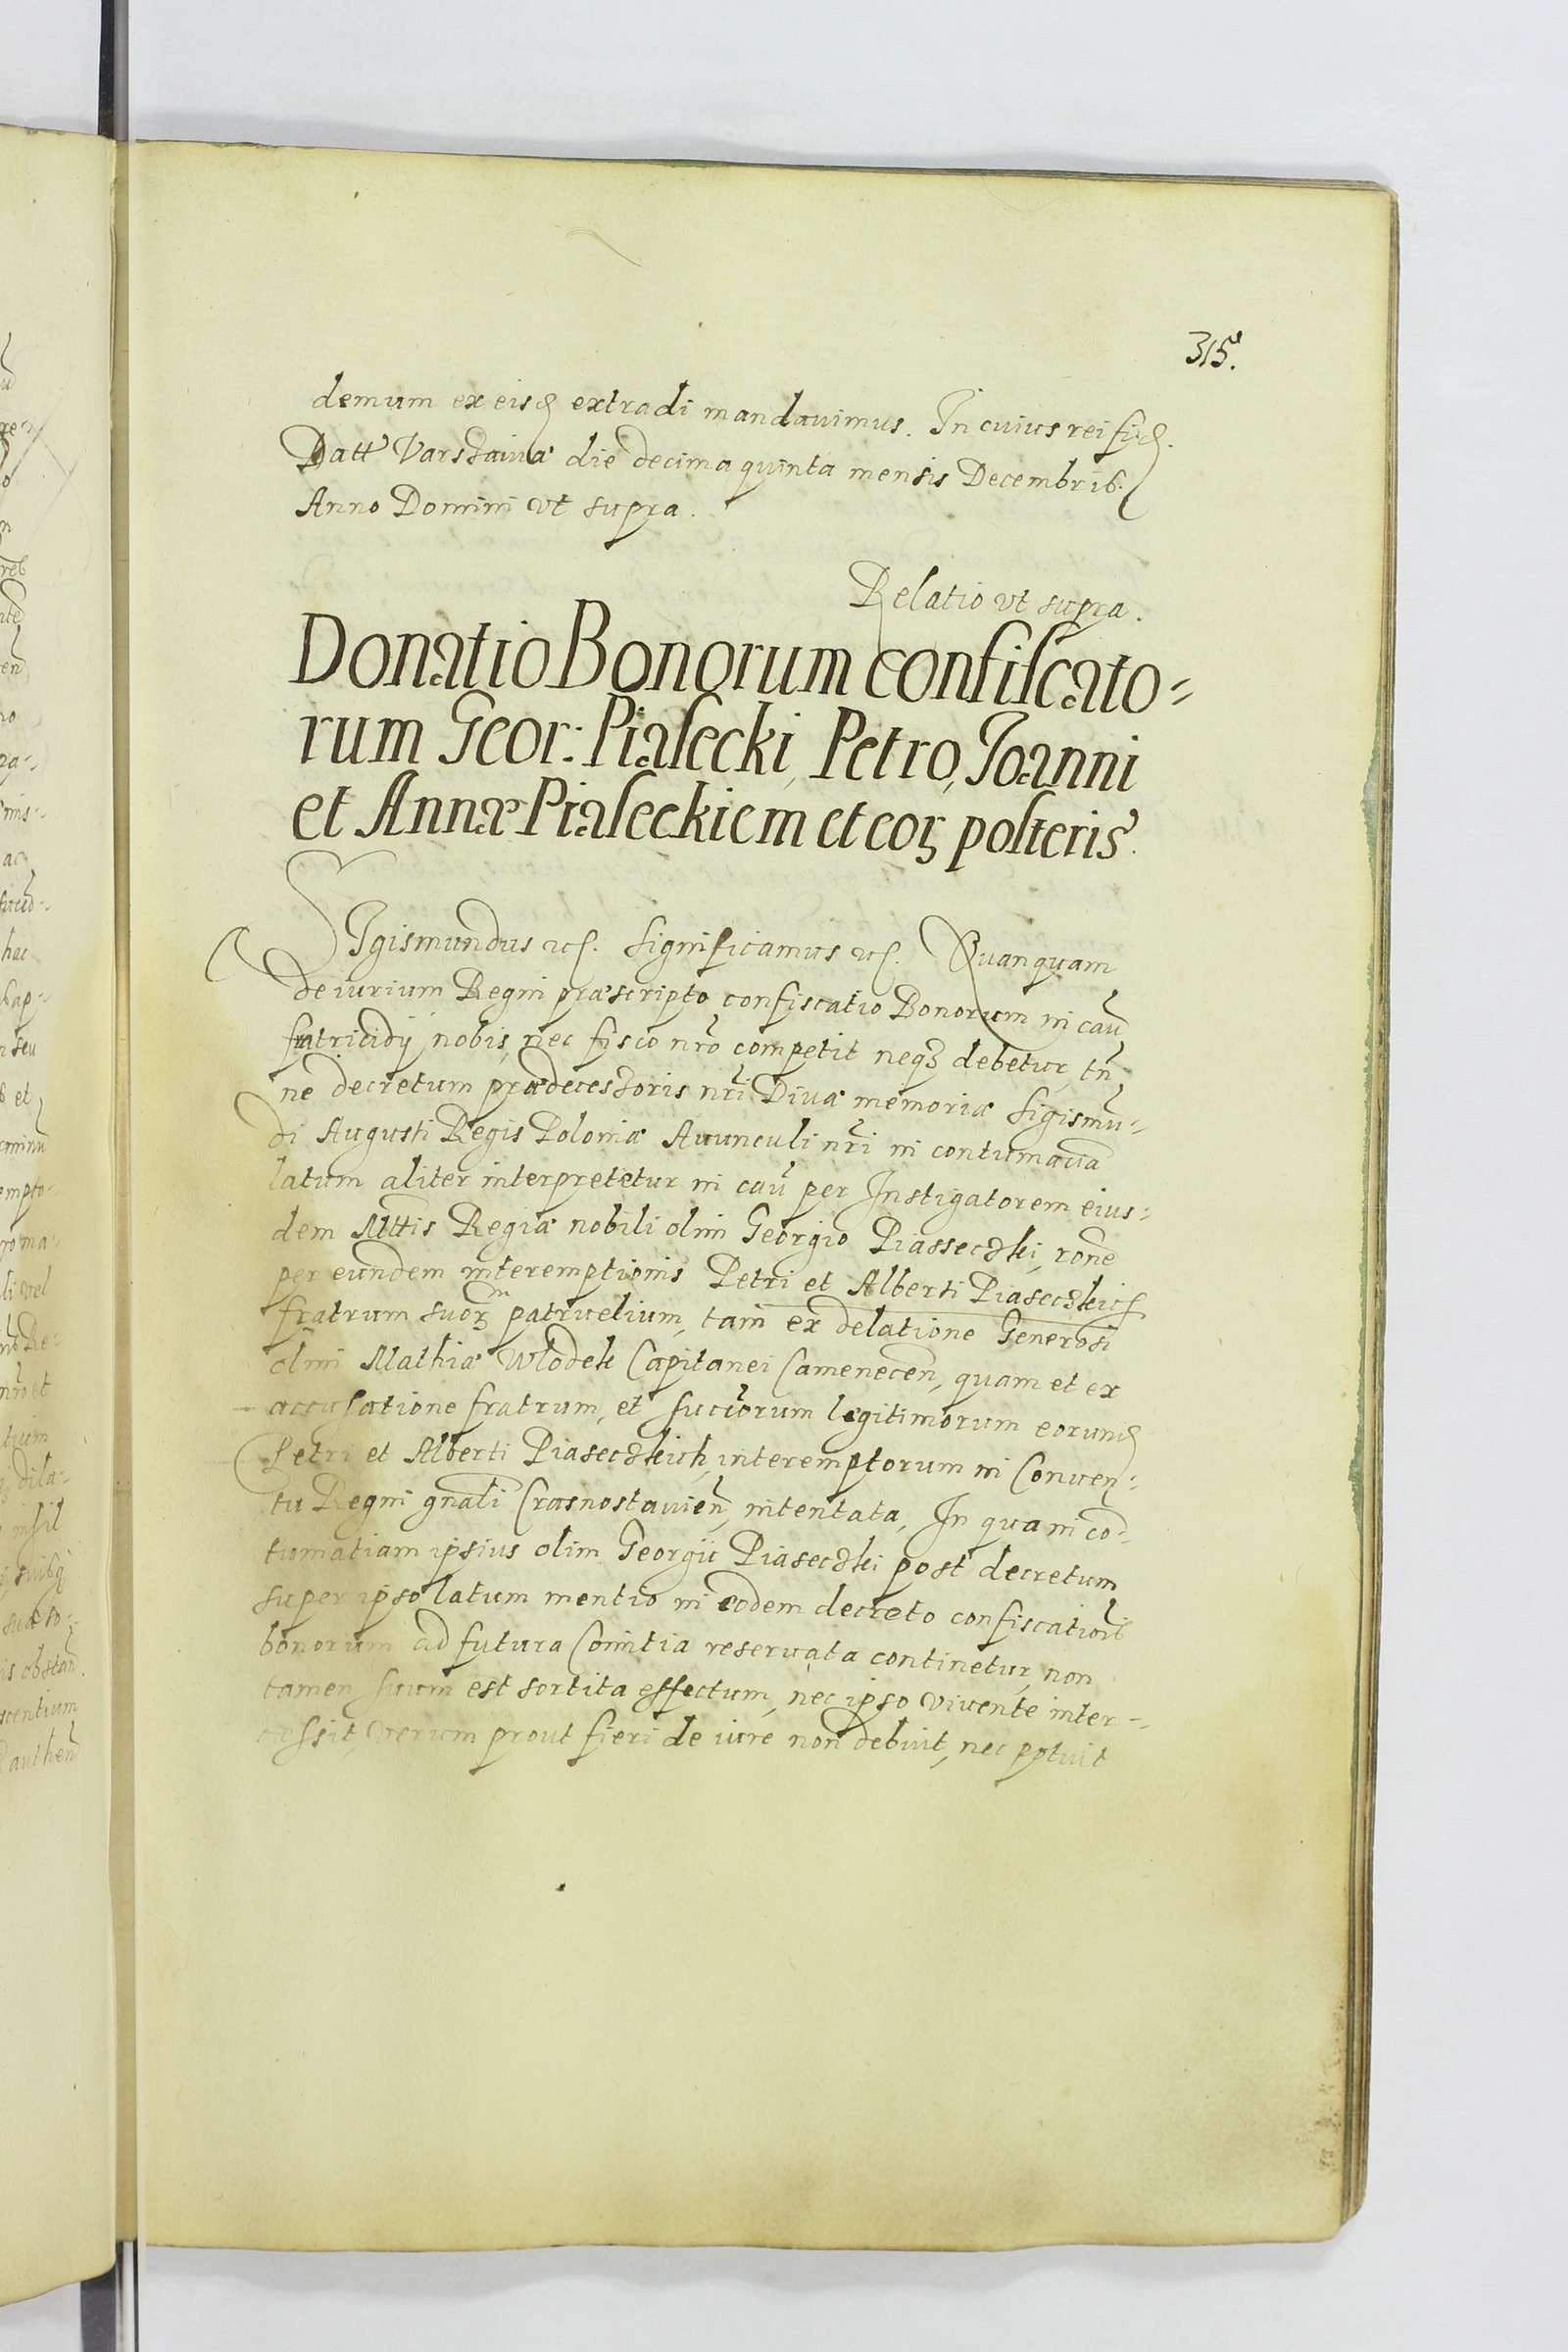 315.
demum ex eisd extradi mandauimus. In cuius rei fid.
Datt Varszauiæ die decima quinta mensis Decembrib.
Anno Domini vt supra.
Relatio vt supra.
Donatio Bonorum confiscato=
rum Geor: Piasecki, Petro, Joanni
et Annæ Piaseckiem et eoꝝ posteris.
SIgismundus etc. Significamus etc. Quanquam
de iurium Regni præscripto confiscatio Bonorum in cau
fratricidij nobis, nec fisco nro competit neqꝫ debetur, tn
ne decretum prædecessoris nri Diuæ memoriæ Sigismu=
di Augusti Regis Poloniæ Auunculi nri in contumacia
latum aliter interpretetur in cau per Instigatorem eius=
dem Mttis Regiæ nobili olim Georgio Piasseczki, rone
per eundem interemptionis Petri et Alberti Piaseczkich
fratrum suoꝝ patruelium, tam ex delatione Generosi
olim Mathiæ Wlodek Capitanei Camenecen, quam et ex
accusatione fratrum, et succorum legitimorum eorund
Petri et Alberti Piaseczkich, interemptorum in Conuen=
tu Regni gnali Crasnostauien, intentata, In qua in co=
tumatiam ipsius olim Georgii Piaseczki post decretum
super ipso latum mentio in eodem decreto confiscationis
bonorum ad futura Comitia reseruata continetur, non
tamen suum est sortita effectum, nec ipso viuente inter=
cessit, verum prout fieri de iure non debuit, nec potuit